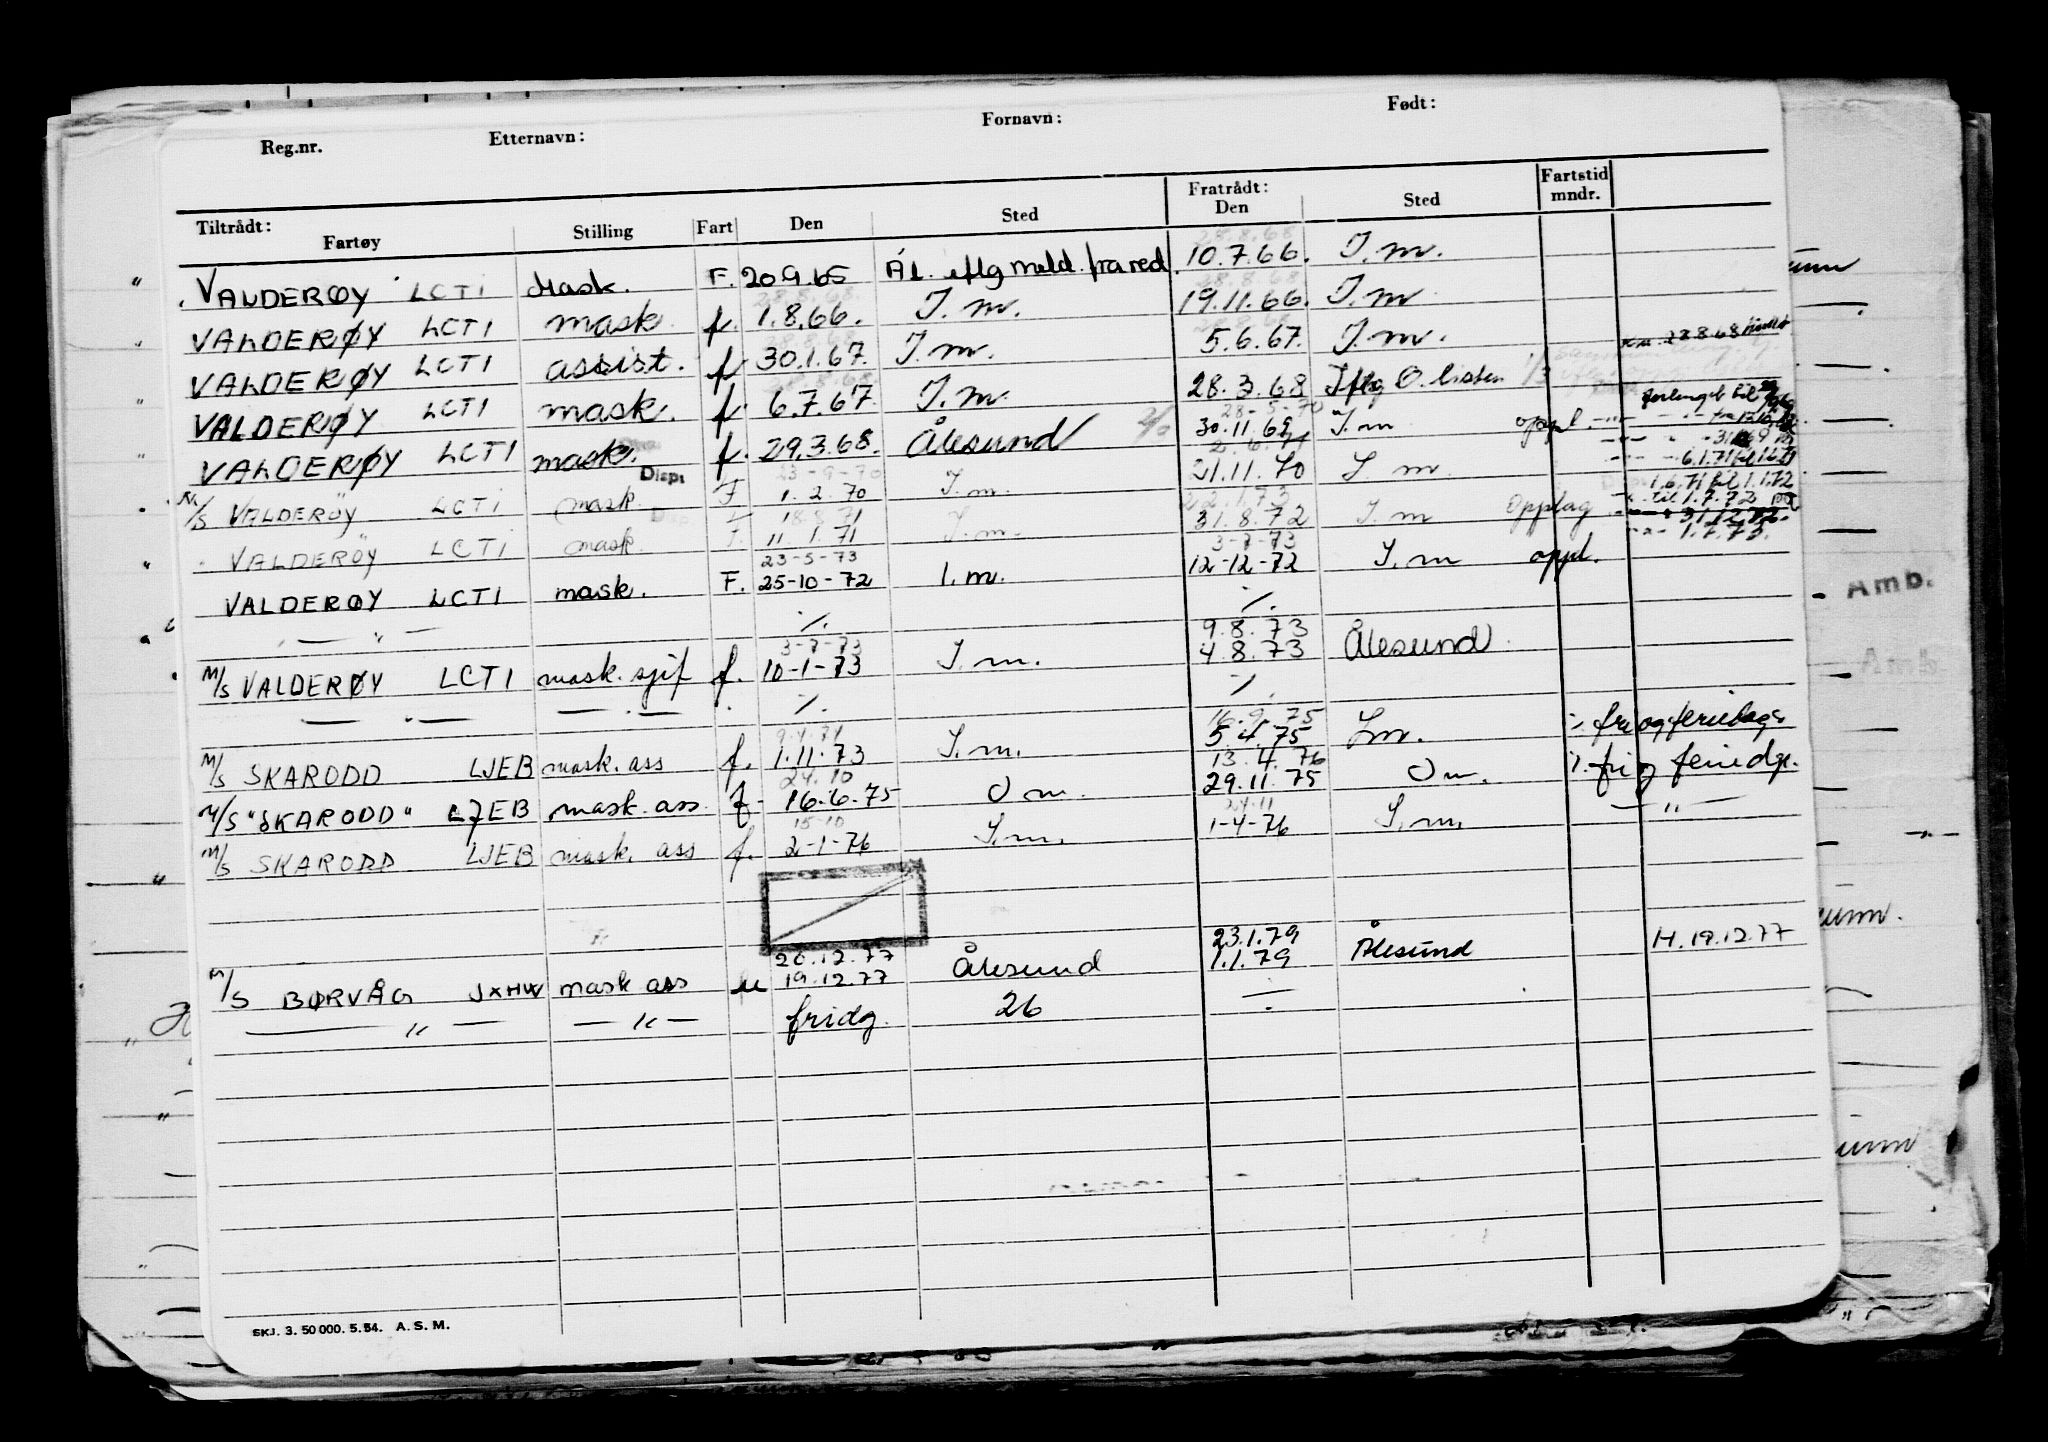 Reg.nr. Etternavn: Fornavn: Født:
Tiltrådt: Fartøy Stilling Fart Den Sted Fratrådt: Den Sted Fartstid mndr.
VALDERØY LCTI Mask. F. 20.9.65 Ål. iflg meld. fra red. 10.7.66. I.m.
VALDERØY LCTI mask f. 1.8.66. I.m. 19.11.66. I.m
VALDERØY LCTI assist. f 30.1.67. I.m. 5.6.67. I.m. 28.8.68
VALDERØY LCTI mask. f. 6.7.67. I.m. 28.3.68 Iflg O. listen
28-5-70 forlenget til
VALDERØY LCTI mask. f. 29.3.68. Ålesund 30.11.69 I.m oppl.
Disp. 23-9-70
M/S VALDERØY LCTI mask F 1.2.70 I.m. 21.11.70 I.m 6.1.71 til 1.6.71
18.8.71 22.1.73 1.6.71 til 1.1.72
VALDERØY LCTI mask F. 11.1.71 I.m. 31.8.72 I.m Opplag til 1.7.72 og
23-5-73 3-7-73 31.12.72.
VALDERØY LCTI mask. F. 25-10-72 I.m. 12-12-72 I.m oppl. 1.7.73.
— " — ./. ./.
3-7-73 9.8.73
M/S VALDERØY LCTI mask. sjef f. 10-1-73 I.m. 4.8.73 Ålesund
— " — — " — ./. ./.
9.4.74 16.9.75
M/S SKARODD LJEB mask. ass f. 1.11.73 I.m. 5.4.75 I.m. ./. fri og feriedage
24.10 13.4.76
M/S "SKARODD" LJEB mask. ass. f. 16.6.75 O m. 29.11.75 O m. ./. fri og feriedge.
15-10 24-11
M/S SKARODD LJEB mask. ass f. 2-1-76 I.m. 1-4-76 I.m. — " —
20.12.77 23.1.79
M/S BØRVÅG JXHW mask ass u 19.12.77 Ålesund 1.1.79 Ålesund H. 19.12.77
— " — — " — fridg. 26 ÷
SKJ. 3. 50 000. 5. 54. A. S. M.
Amb.
Amb